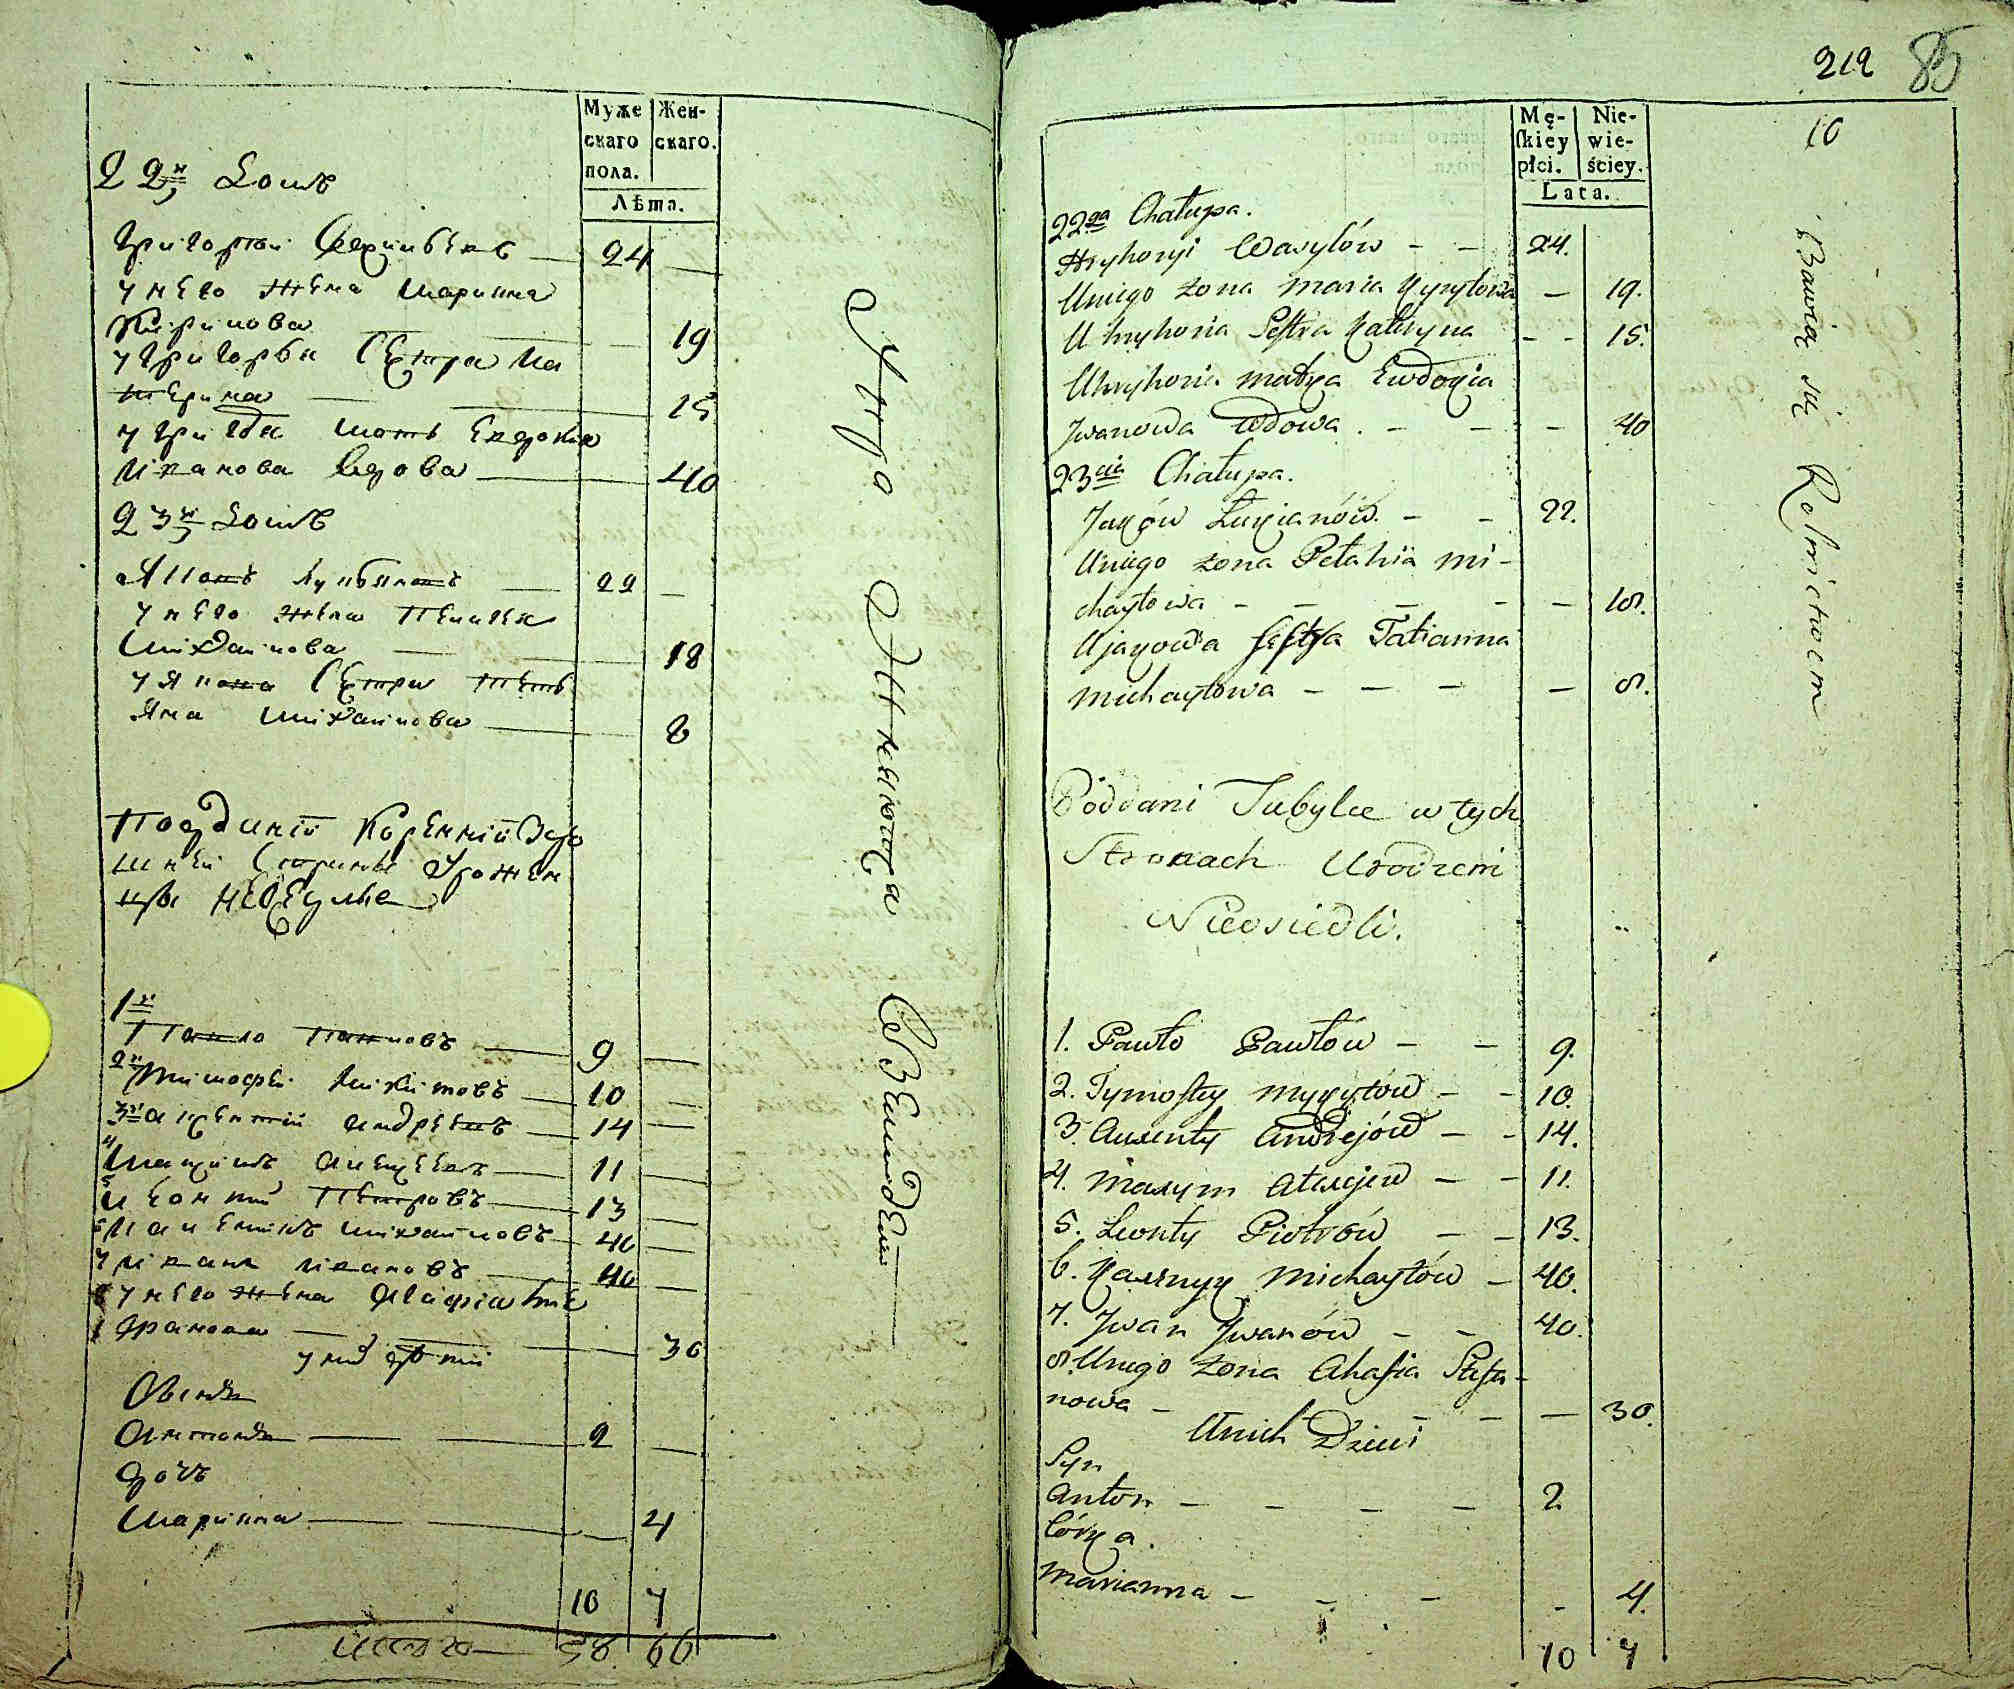 Муже
скаго
пола.
Жен-
скаго.
Лѣта.
22й Домъ
Григорій 24
у него жена Марина
Кирилова 19
у Григорья Сестра Ка
терина 15
у Григорья мать Евдокия
Иванова Вдова 40
23й Домъ
Яковъ Лукьяновъ 22
у него жена Пелагея
Михайлова 18
у Якова Сестра Теть
яна Михайлова 8
Подданий Коренний
Сторонъ Урожен
цы
1й
Павло Павловъ 9
2й Тимофей Никитовъ 10
3й Авксентий Андреевъ 14
4 Максимъ Алексеевъ 11
5 Леонтий Петровъ 13
6 Михайловъ 40
7 Иванъ Ивановъ 40
8 у него жена Агафия Сте
фанова 30
у них дѣти
Сынъ
Антонъ 2
дочъ
Марянна 4
10 7
Итого 58 66
Упражняются Земледелием
212 85
Mę-
ſkiey
płci.
Nie-
wie-
ściey.
Lata.
22ga Chałupa.
Hryhoryi Wasylów - - 24.
Uniego żona Maria Kyryłowa - 19.
U hryhoria Sestra Kateryna - - 15.
Uhryhoria matka Ewdokia
Jwanowa Wdowa. - - - 40
23cia Chałupa.
Jaków Łukianów. - - 22.
Uniego żona Pełahia Mi-
chayłowa - - - - - 18.
Ujakowa Sestra Tatianna
Michayłowa - - - - 8.
Poddani Tubylce w tych
Stronach Urodzeni
Nieosiedli.
1. Pawło Pawłów - - 9.
2. Tymofey Mykytów - - 10.
3. Auxenty Andrejów - - 14.
4. Maxym Alexejew - - 11.
5. Leonty Piotrów - - 13.
6. Michayłów - 40.
7. Jwan Jwanów - - 40.
8. Uniego żona Ahafia Stefa-
nowa - - - - 30.
Unich Dzieci
Syn
Anton - - - - 2.
Córka.
Marianna - - - - 4.
10 7
10
Bawią się Rolnictwem